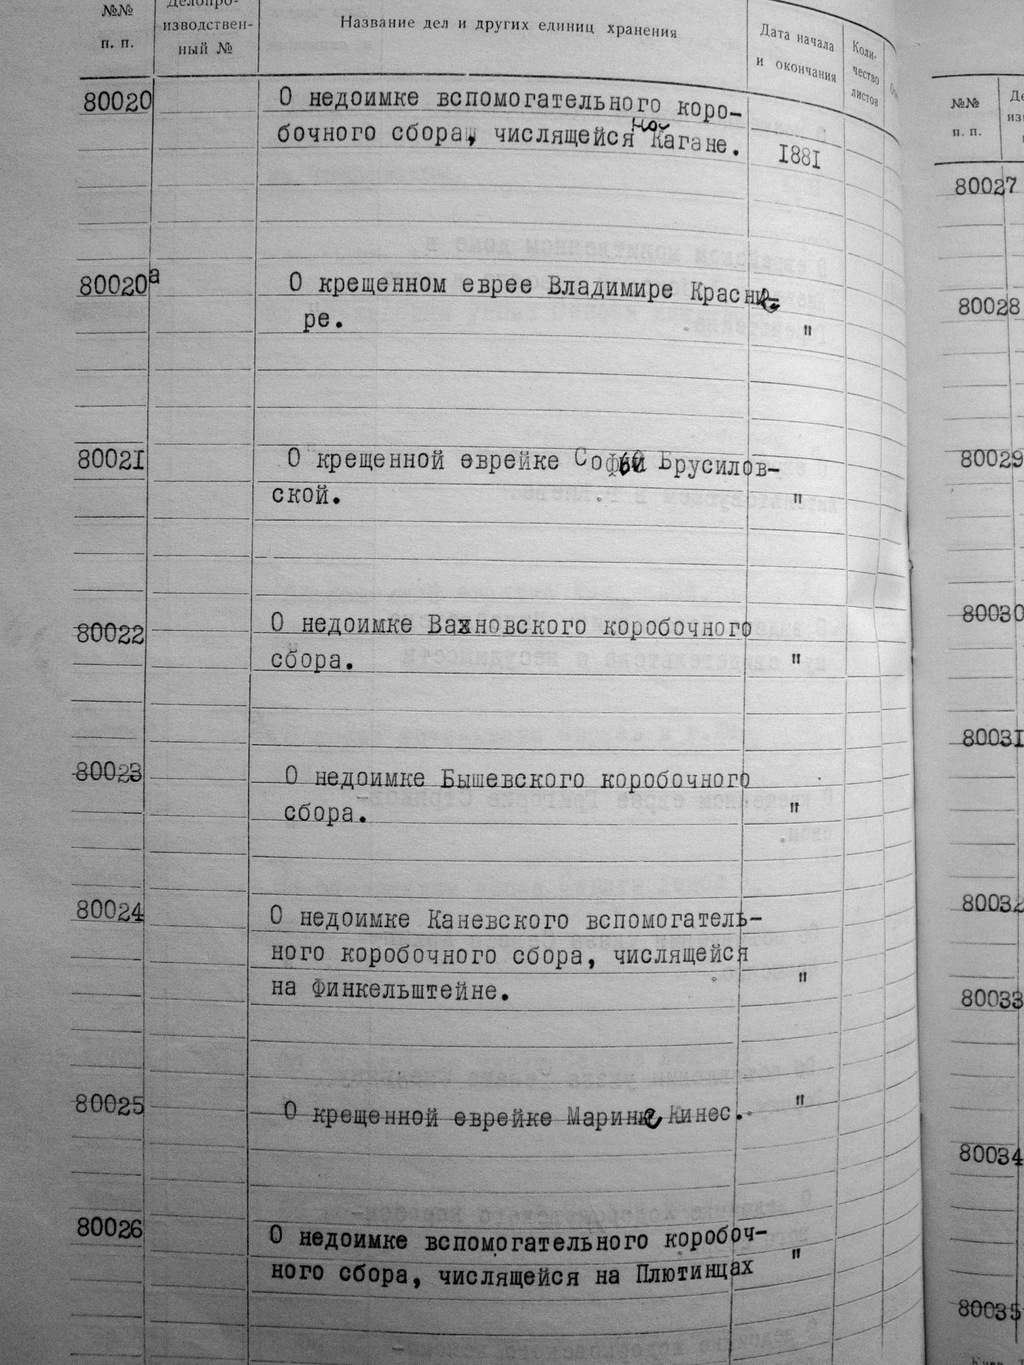 №№
п. п.
Делопро-
изводствен-
ный №
Название дел и других единиц хранения
Дата начала
и окончания
Коли-
чество
листов
80020
О недоимке вспомогательного коро-
бочного сбора, числящейся на Кагане.
1881
80020а
О крещенном еврее Владимире Красни-
ре.
"
80021
О крещенной еврейке Софии Брусилов-
ской.
"
80022
О недоимке Вахновского коробочного
сбора.
"
80023
О недоимке Бышевского коробочного
сбора.
"
80024
О недоимке Каневского вспомогатель-
ного коробочного сбора, числящейся
на Финкельштейне.
"
80025
О крещенной еврейке Марине Кинес.
"
80026
О недоимке вспомогательного коробоч-
ного сбора, числящейся на Плютинцах
"
№№
п. п.
80027
80028
80029
80030
80031
80032
80033
80034
80035